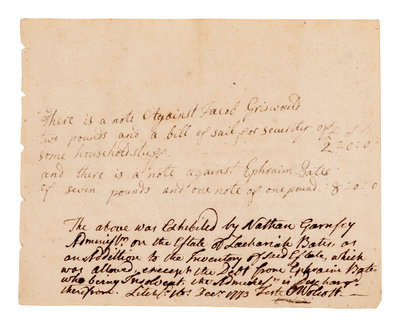 There is a note Against Jacob Griswould
two pounds and a bill of sail for securiter of £ s d
some householdstuff 2=0=0
and there is a note against Ephraim Bates
of seven pounds and one note of one pound 8=0=0
The above was Exhibited by Nathan Garnsey
Administr. on the Estate of Zachariah Bates, as
an Addition to the Inventory of sd Estate, which
was allowed, except the Debt from Ephraim Bates
who being Insolvent, the Admr is
therefrom. 1773 Test